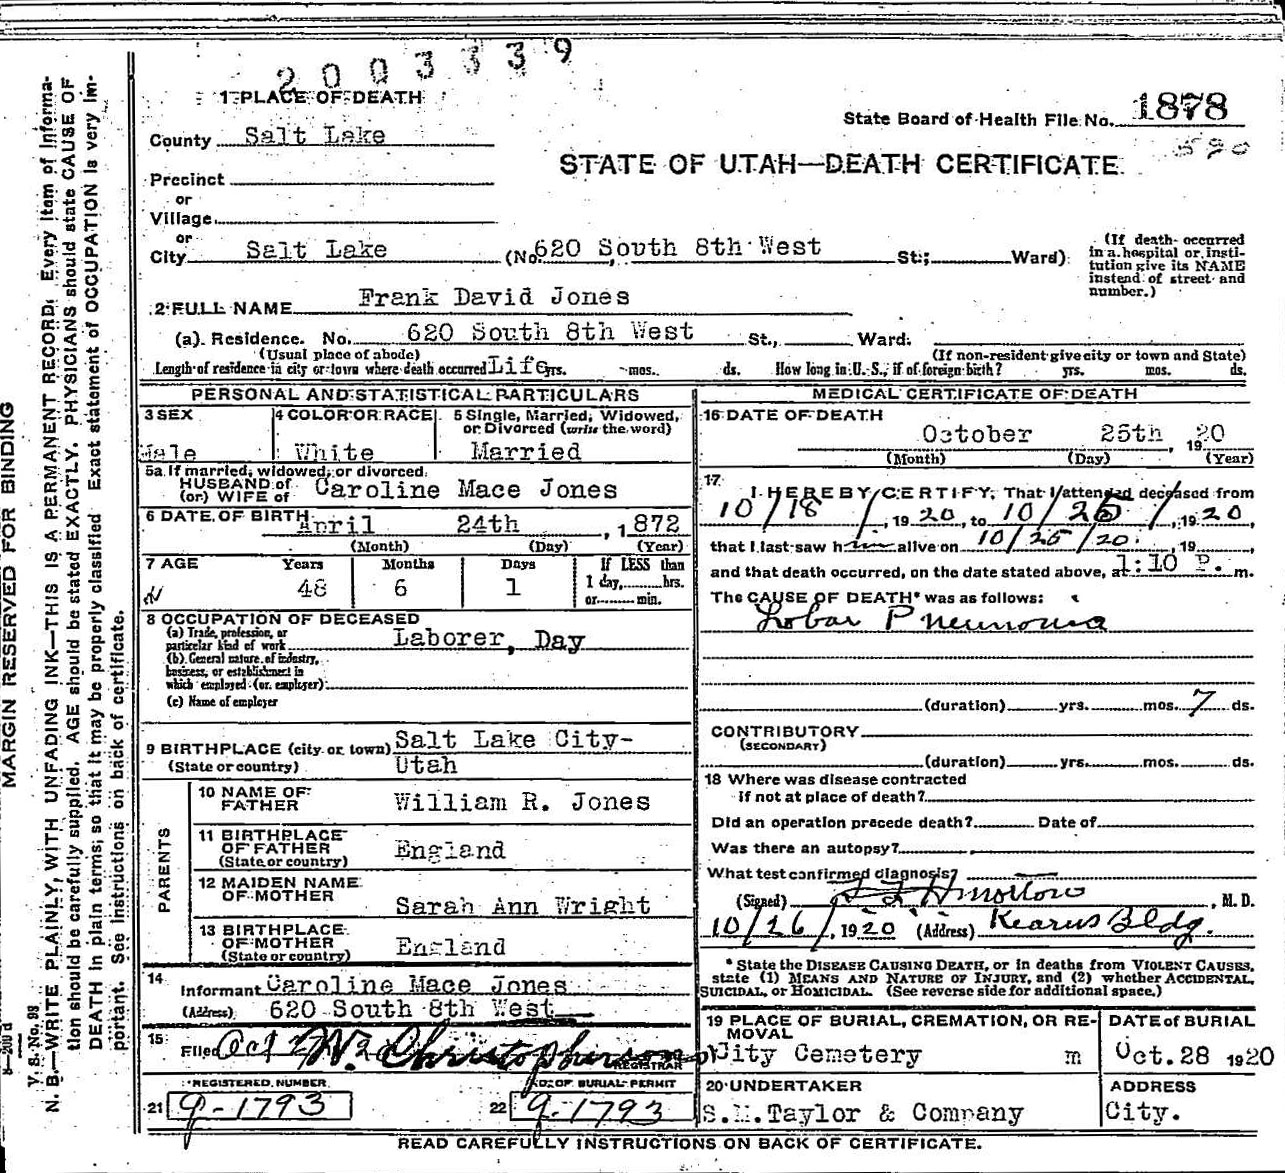 2003339
1 PLACE OF DEATH
State Board of Health File No. 1878
590
County Salt Lake
STATE OF UTAH—DEATH CERTIFICATE
Precinct
or
Village
or
City Salt Lake (No. 620 South 8th West St.; Ward)
(If death occurred in a hospital or institution give its NAME instead of street and number.)
2 FULL NAME Frank David Jones
(a). Residence. No. 620 South 8th West St., Ward.
(Usual place of abode) (If non-resident give city or town and State)
Length of residence in city or town where death occurred Life yrs. mos. ds. How long in U. S., if of foreign birth? yrs. mos. ds.
PERSONAL AND STATISTICAL PARTICULARS
3 SEX 4 COLOR OR RACE 5 Single, Married, Widowed, or Divorced (write the word)
Male White Married
5a If married, widowed, or divorced.
HUSBAND of
(or) WIFE of Caroline Mace Jones
6 DATE OF BIRTH April 24th, 1872
(Month) (Day) (Year)
7 AGE Years Months Days If LESS than
48 6 1 1 day, hrs.
or min.
8 OCCUPATION OF DECEASED
(a) Trade, profession, or
particular kind of work Laborer, Day
(b) General nature of industry,
business, or establishment in
which employed (or employer)
(c) Name of employer
9 BIRTHPLACE (city or town) Salt Lake City-
(State or country) Utah
PARENTS
10 NAME OF FATHER William R. Jones
11 BIRTHPLACE OF FATHER (State or country) England
12 MAIDEN NAME OF MOTHER Sarah Ann Wright
13 BIRTHPLACE OF MOTHER (State or country) England
14
Informant Caroline Mace Jones
(Address) 620 South 8th West
15
Filed Oct 2 Christopherson
REGISTRAR
REGISTERED NUMBER NO. OF BURIAL PERMIT
21 9-1793 22 9-1793
MEDICAL CERTIFICATE OF DEATH
16 DATE OF DEATH
October 25th, 1920
(Month) (Day) (Year)
17
I HEREBY CERTIFY, That I attended deceased from
10/18/, 1920, to 10/25/, 1920,
that I last saw him alive on 10/25/20., 19 ,
and that death occurred, on the date stated above, at 1:10 P. m.
The CAUSE OF DEATH* was as follows:
Lobar Pneumonia
(duration) yrs. mos. 7 ds.
CONTRIBUTORY
(SECONDARY)
(duration) yrs. mos. ds.
18 Where was disease contracted
if not at place of death?
Did an operation precede death? Date of
Was there an autopsy?
What test confirmed diagnosis?
(Signed) , M. D.
10/26/, 1920 (Address) Kearns Bldg.
* State the DISEASE CAUSING DEATH, or in deaths from VIOLENT CAUSES,
state (1) MEANS AND NATURE OF INJURY, and (2) whether ACCIDENTAL,
SUICIDAL, or HOMICIDAL. (See reverse side for additional space.)
19 PLACE OF BURIAL, CREMATION, OR RE- DATE of BURIAL
MOVAL
City Cemetery m Oct. 28 1920
20 UNDERTAKER ADDRESS
S.M. Taylor & Company City.
READ CAREFULLY INSTRUCTIONS ON BACK OF CERTIFICATE.
MARGIN RESERVED FOR BINDING
V. S. No. 98
N. B.—WRITE PLAINLY, WITH UNFADING INK—THIS IS A PERMANENT RECORD. Every item of informa-
tion should be carefully supplied. AGE should be stated EXACTLY. PHYSICIANS should state CAUSE OF
DEATH in plain terms, so that it may be properly classified. Exact statement of OCCUPATION is very im-
portant. See instructions on back of certificate.